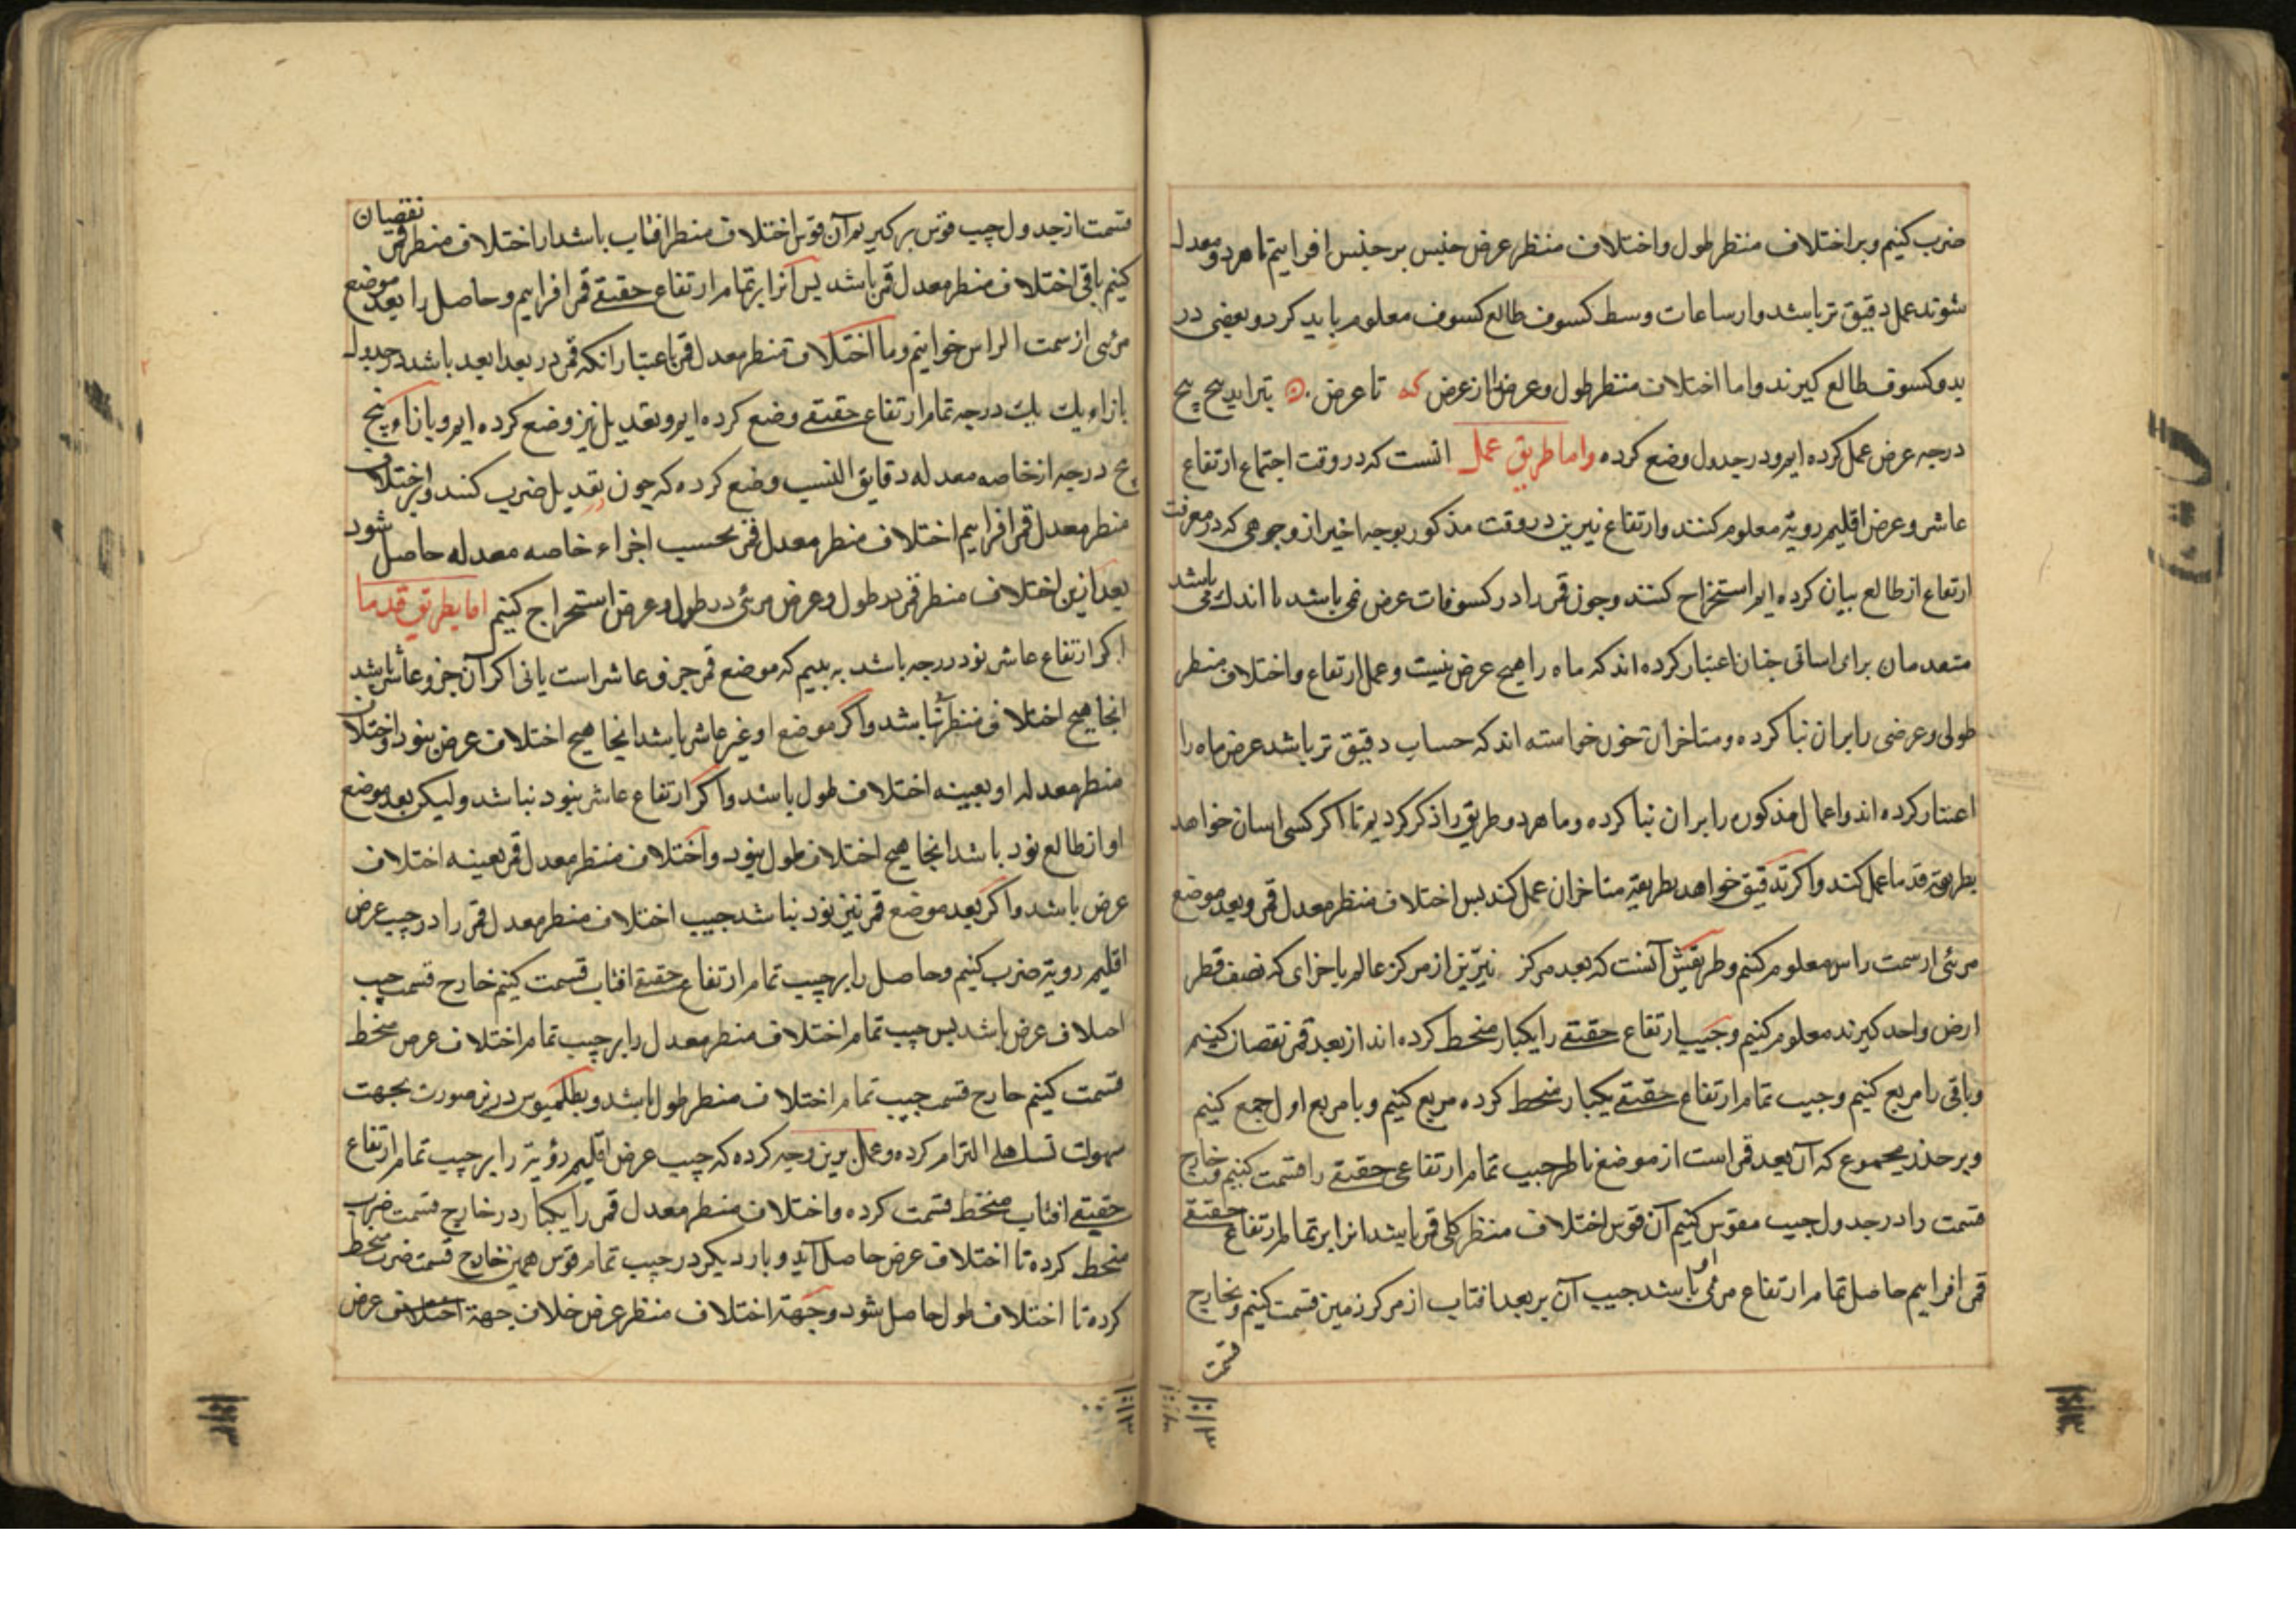 ضرب کنیم و بر اختلاف منظر طول و اختلاف منظر عرض جنس بر جنس افزاییم تا هر دو معدل
شوند عمل دقیق تر باشد و از ساعات وسط کسوف طالع کسوف معلوم باید کرد و بعضی در
بدو کسوف طالع کیرند و اما اختلاف منظر طول و عرض از عرض که تا عرض ن بتزاید پنج پنج
درجه عرض عمل کرده ایم و در جدول وضع کرده و اما طریق عمل انست که در وقت اجتماع ارتفاع
عاشر و عرض اقلیم رویة معلوم کنند و ارتفاع نیرین در وقت مذکور بوجه اخیر از وجوهی که در معرفت
ارتفاع از طالع بیان کرده ایم استخراج کنند و چون قمر را در کسوفات عرض نمی باشد یا اندک می باشد
متقدمان برای اسانی چنان اعتبار کرده اند که ماه را هیچ عرض نیست و عمل ارتفاع و اختلاف منظر
طولی و عرضی را بران بنا کرده و متاخران چون خواسته اند که حساب دقیق تر باشد عرض ماه را
اعتبار کرده اند و اعمال مذکوره را بران بنا کرده و ما هر دو طریق را ذکر کردیم تا اکر کسی اسان خواهد
بطریقه قدما عمل کند و اکر تدقیق خواهد بطریقه متاخران عمل کند بس اختلاف منظر معدل قمر و بعد موضع
مرئی از سمت راس معلوم کنیم و طریقش آنست که بعد مرکز نیرین از مرکز عالم باجزای که نصف قطر
ارض واحد کیرند معلوم کنیم و جیب ارتفاع حقیقے را یکبار منحط کرده اند از بعد قمر نقصان کنیم
و باقی را مربع کنیم و جیب تمام ارتفاع حقیقے یکبار منحط کرده مربع کنیم و با مربع اول جمع کنیم
و بر جذر مجموع که آن بعد قمر است از موضع ناظر جیب تمام ارتفاعی حقیقے را قسمت کنیم خارج
قسمت را در جدول جیب مقوس کنیم آن قوس اختلاف منظر کلی قمر باشد انرا بر تمام ارتفاع حقیقے
قمر افزاییم حاصل تمام ارتفاع مرئی او باشد جیب آن بر بعد افتاب از مرکز زمین قسمت کنیم و بخارج
قسمت
قسمت از جدول جیب قوس برکیریم آن قوس اختلاف منظر افتاب باشد از اختلاف منظر قمر نقصان
کنیم باقی اختلاف منظر معدل قمر باشد پس انرا بر تمام ارتفاع حقیقے قمر افزاییم و حاصل را بعد موضع
مرئی از سمت الراس خوانیم و ما اختلاف منظر معدل قمر باعتبار انکه قمر در بعد ابعد باشد در جدول
بازاء یک یک درجه تمام ارتفاع حقیقے وضع کرده ایم و تعدیل نیز وضع کرده ایم و بازاء پنج
پنج درجه از خاصه معدله دقایق النسب وضع کرده که چون در تعدیل ضرب کنند و بر اختلاف
منظر معدل قمر افزاییم اختلاف منظر معدل قمر بحسب اجزاء خاصه معدله حاصل شود
بعد ازین اختلاف منظر قمر در طول و عرض مرئی در طول و عرض استخراج کنیم اما بطریق قدما
اکر ارتفاع عاشر نود درجه باشد به بینیم که موضع قمر جزو عاشر است یا نی اکر آن جزو عاشر باشد
انجا هیچ اختلاف منظر نباشد و اکر موضع او غیر عاشر باشد انجا هیچ اختلاف عرض نبود و اختلاف
منظر معدله او بعینه اختلاف طول باشد و اکر ارتفاع عاشر نود نباشد ولیکن بعد موضع
او از طالع نود باشد انجا هیچ اختلاف طول نبود و اختلاف منظر معدل قمر بعینه اختلاف
عرض باشد و اکر بعد موضع قمر نیز نود نباشد جیب اختلاف منظر معدل قمر را در جیب عرض
اقلیم رویة ضرب کنیم و حاصل را بر جیب تمام ارتفاع حقیقے افتاب قسمت کنیم خارج قسمت جیب
اختلاف عرض باشد بس جیب تمام اختلاف منظر معدل را بر جیب تمام اختلاف عرض منحط
قسمت کنیم خارج قسمت جیب تمام اختلاف منظر طول باشد و بطلمیوس درین صورت بجهت
سهولت تساهلی التزام کرده و عمل برین وجه کرده که جیب عرض اقلیم رؤیة را بر جیب تمام ارتفاع
حقیقے افتاب منحط قسمت کرده و اختلاف منظر معدل قمر را یکبار در خارج قسمت ضرب
منحط کرده تا اختلاف عرض حاصل آید و بار دیکر در جیب تمام قوس همین خارج قسمت ضرب منحط
کرده تا اختلاف طول حاصل شود و جهة اختلاف منظر عرض خلاف جهة اختلاف عرض